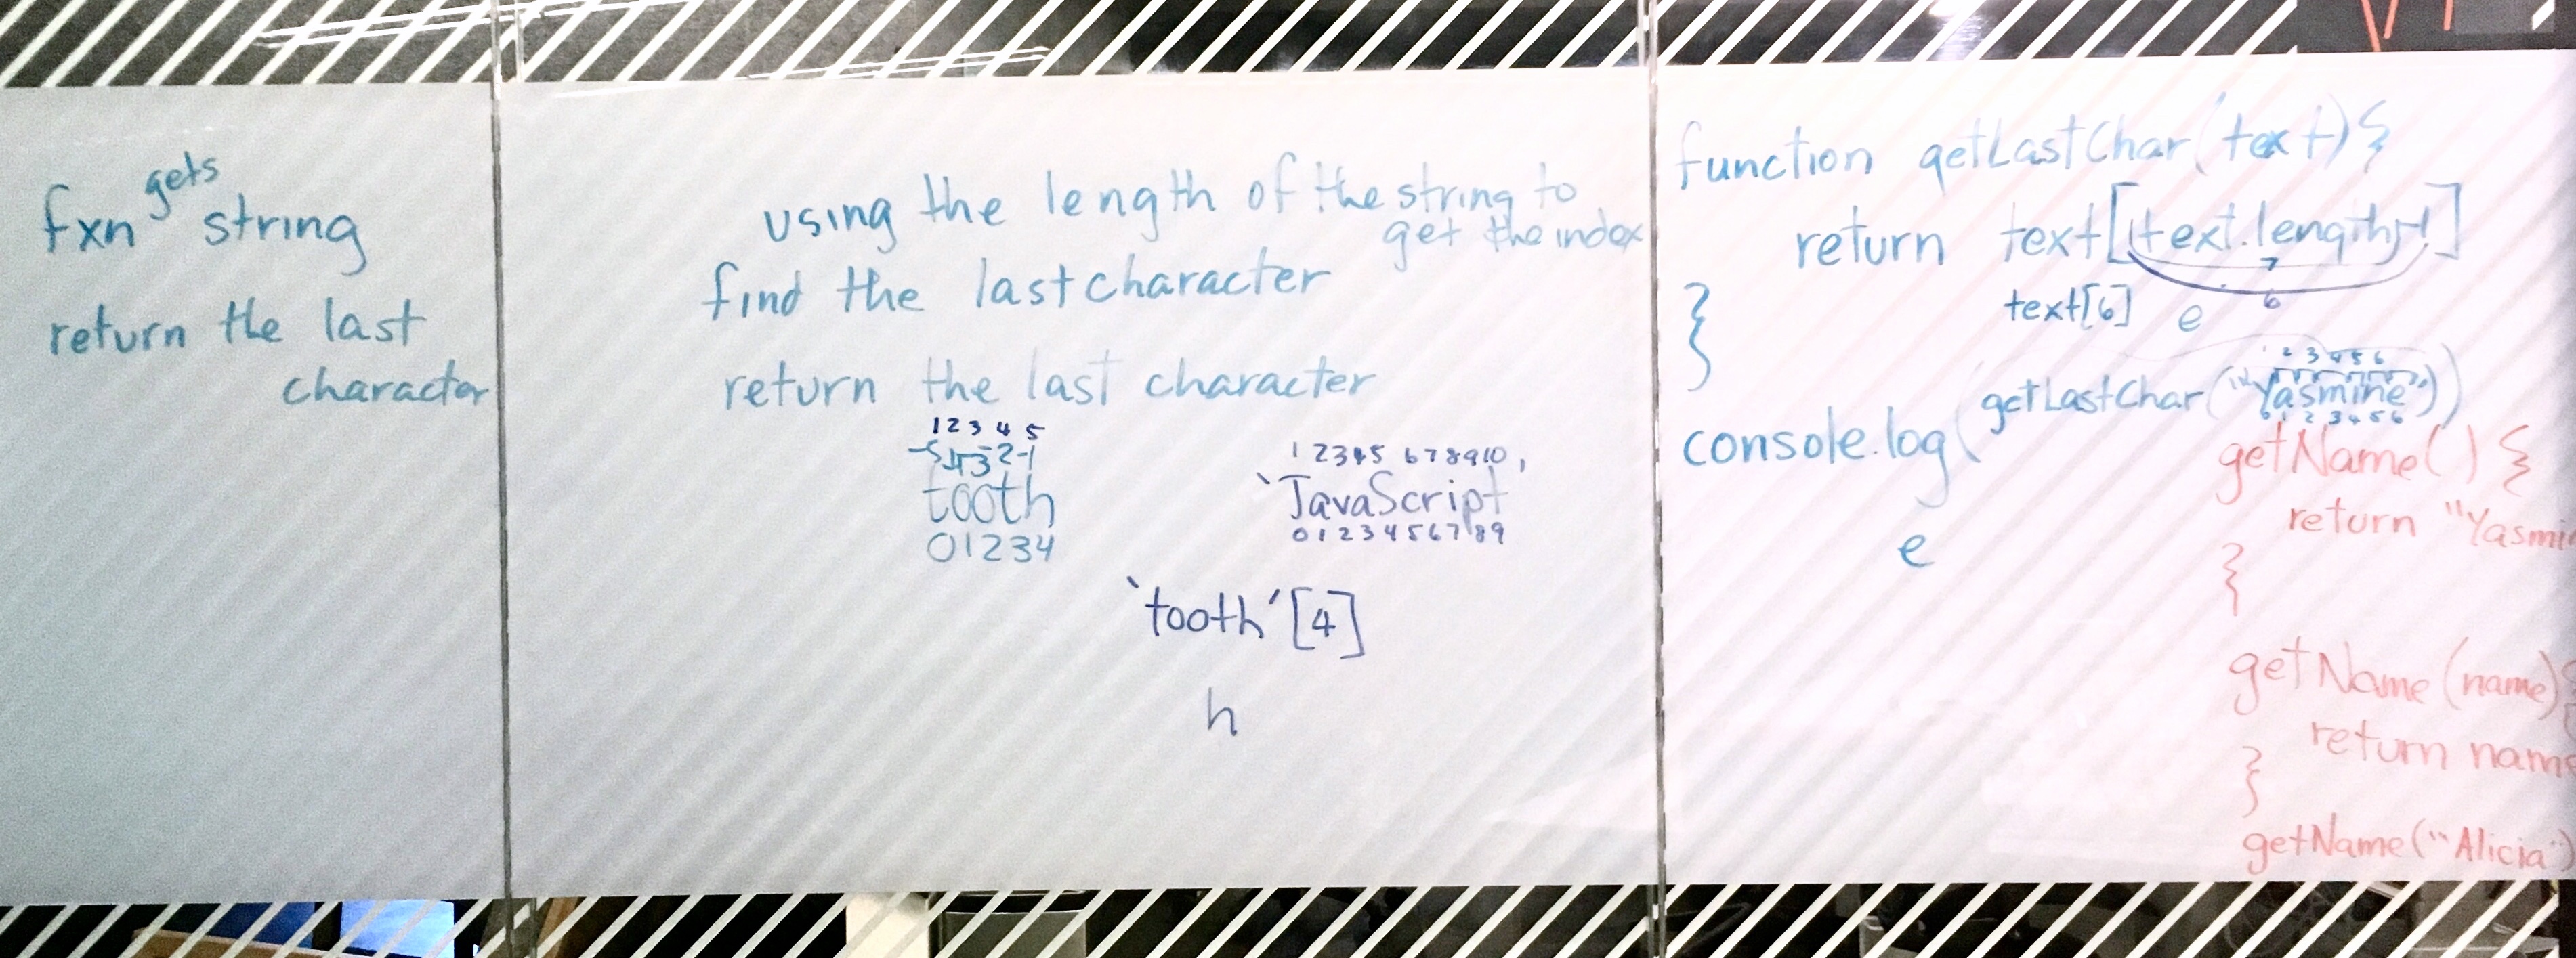 fxn gets string
return the last
character
using the length of the string to
get the index
find the last character
return the last character
1 2 3 4 5
-5 -4 -3 -2 -1
tooth
0 1 2 3 4
1 2 3 4 5 6 7 8 9 10
`JavaScript'
0 1 2 3 4 5 6 7 8 9
`tooth'[4]
h
function getLastChar(text){
return text[(text.length)-1]
7
6
text[6] e
}
1 2 3 4 5 6
console.log(getLastChar("Yasmine"))
0 1 2 3 4 5 6
e
getName(){
return "Yasmin
}
getName(name){
return name
}
getName("Alicia")